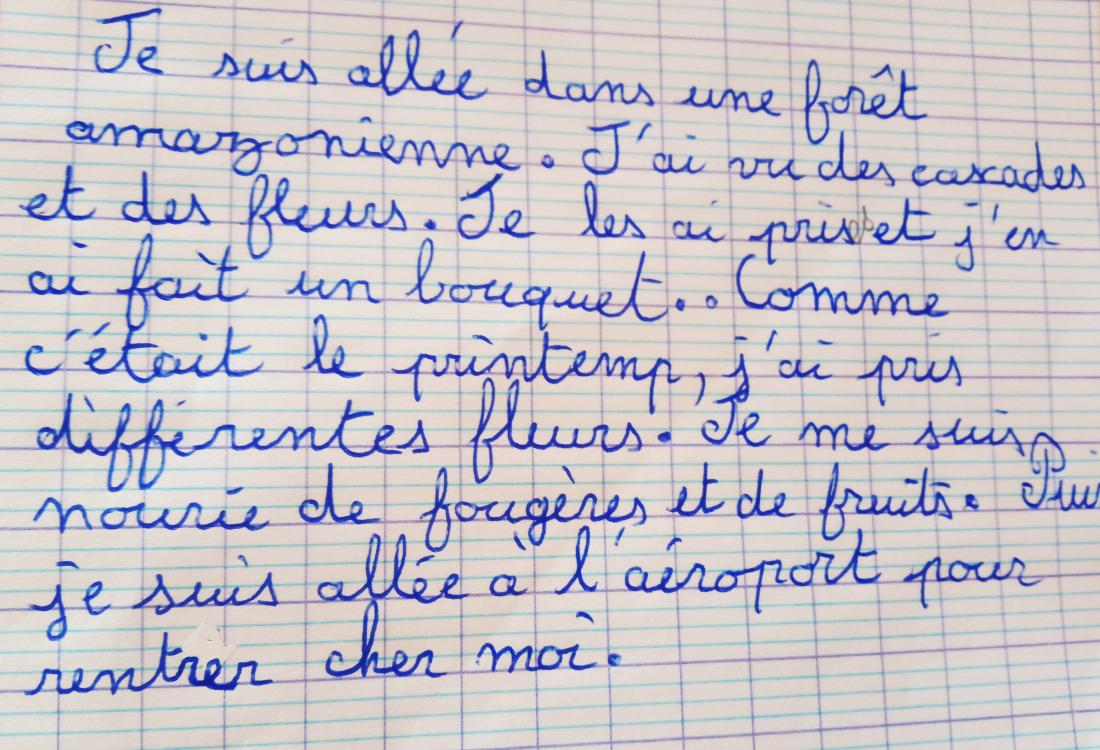 Je suis allée dans une forêt
amazonienne. J'ai vu des cascades
et des fleurs. Je les ai pris et j'en
ai fait un bouquet.. Comme
c'était le printemp, j'ai pris
différentes fleurs. Je me suis
nourie de fougères et de fruits. Pui
je suis allée à l'aéroport pour
rentrer cher moi.